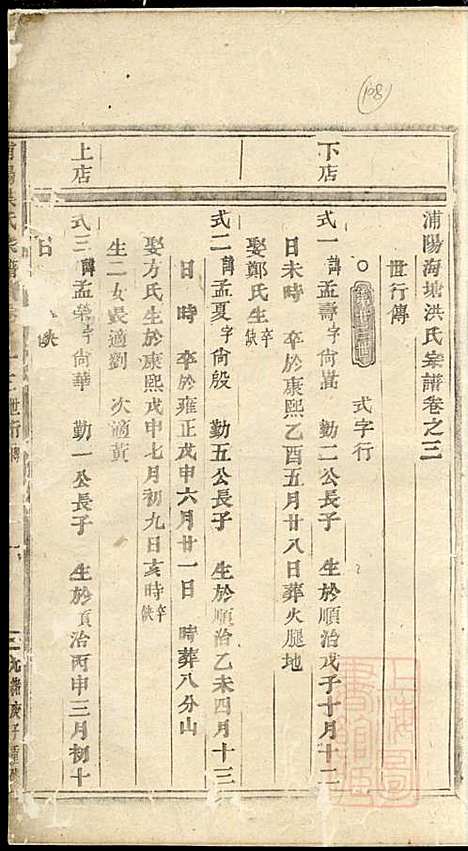 108
浦陽海塘洪氏宗譜卷之三
世行傳
式字行
下店
式一諱孟壽字尚嵩 勤二公長子 生於順治戊子十月十二
日未時 卒於康熙乙酉五月廿八日葬火腿地
娶鄭氏生卒缺
式二諱孟夏字尚殷 勤五公長子 生於順治乙未四月十三
日 時 卒於雍正戊申六月廿一日 時葬八分山
娶方氏生於康熙戊申七月初九日亥時卒缺
生二女長適劉 次適黃
上店
式三諱孟榮字尚華 勤一公長子 生於順治丙申三月初十
日 缺